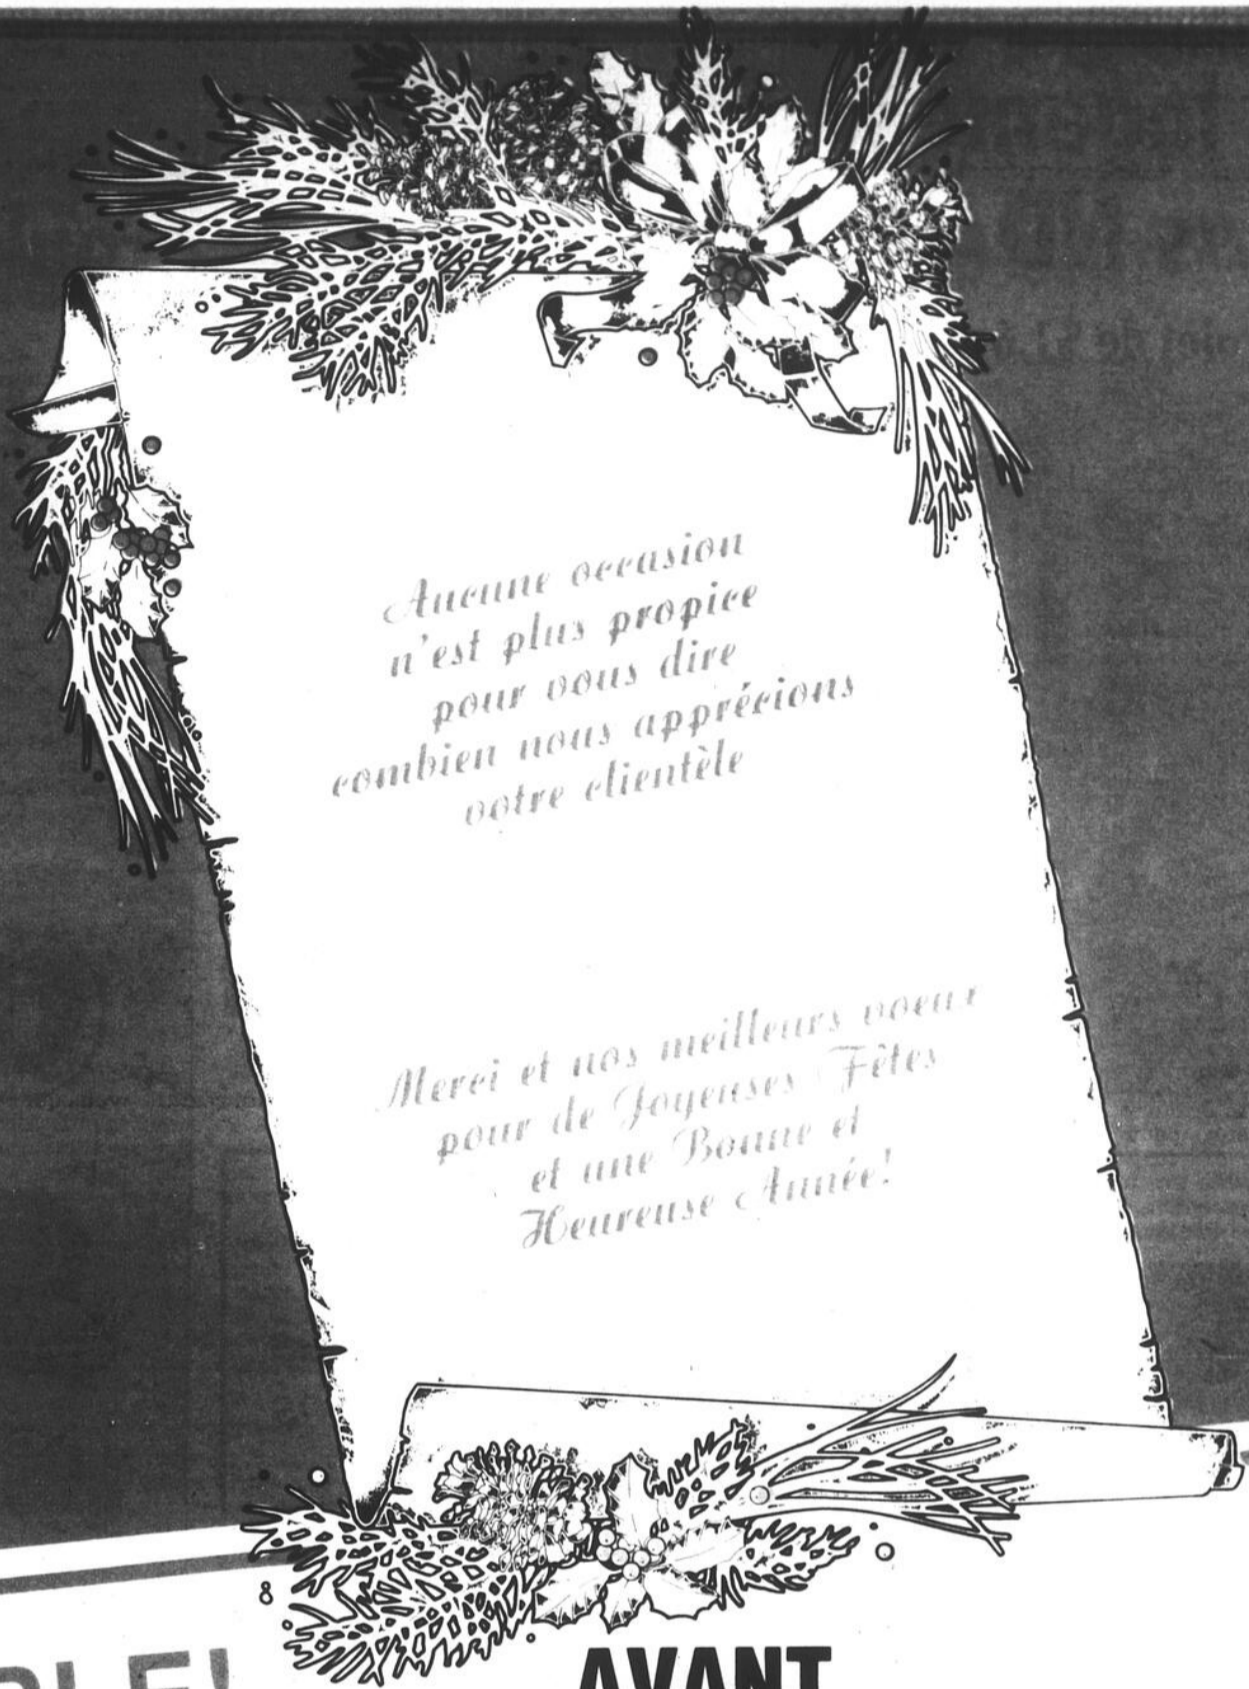 Aucune occasion
n'est plus propice
pour vous dire
combien nous apprécions
votre clientèle
Merci et nos meilleurs voeux
pour de Joyeuses Fêtes
et une Bonne et
Heureuse Année!
8
AVANT